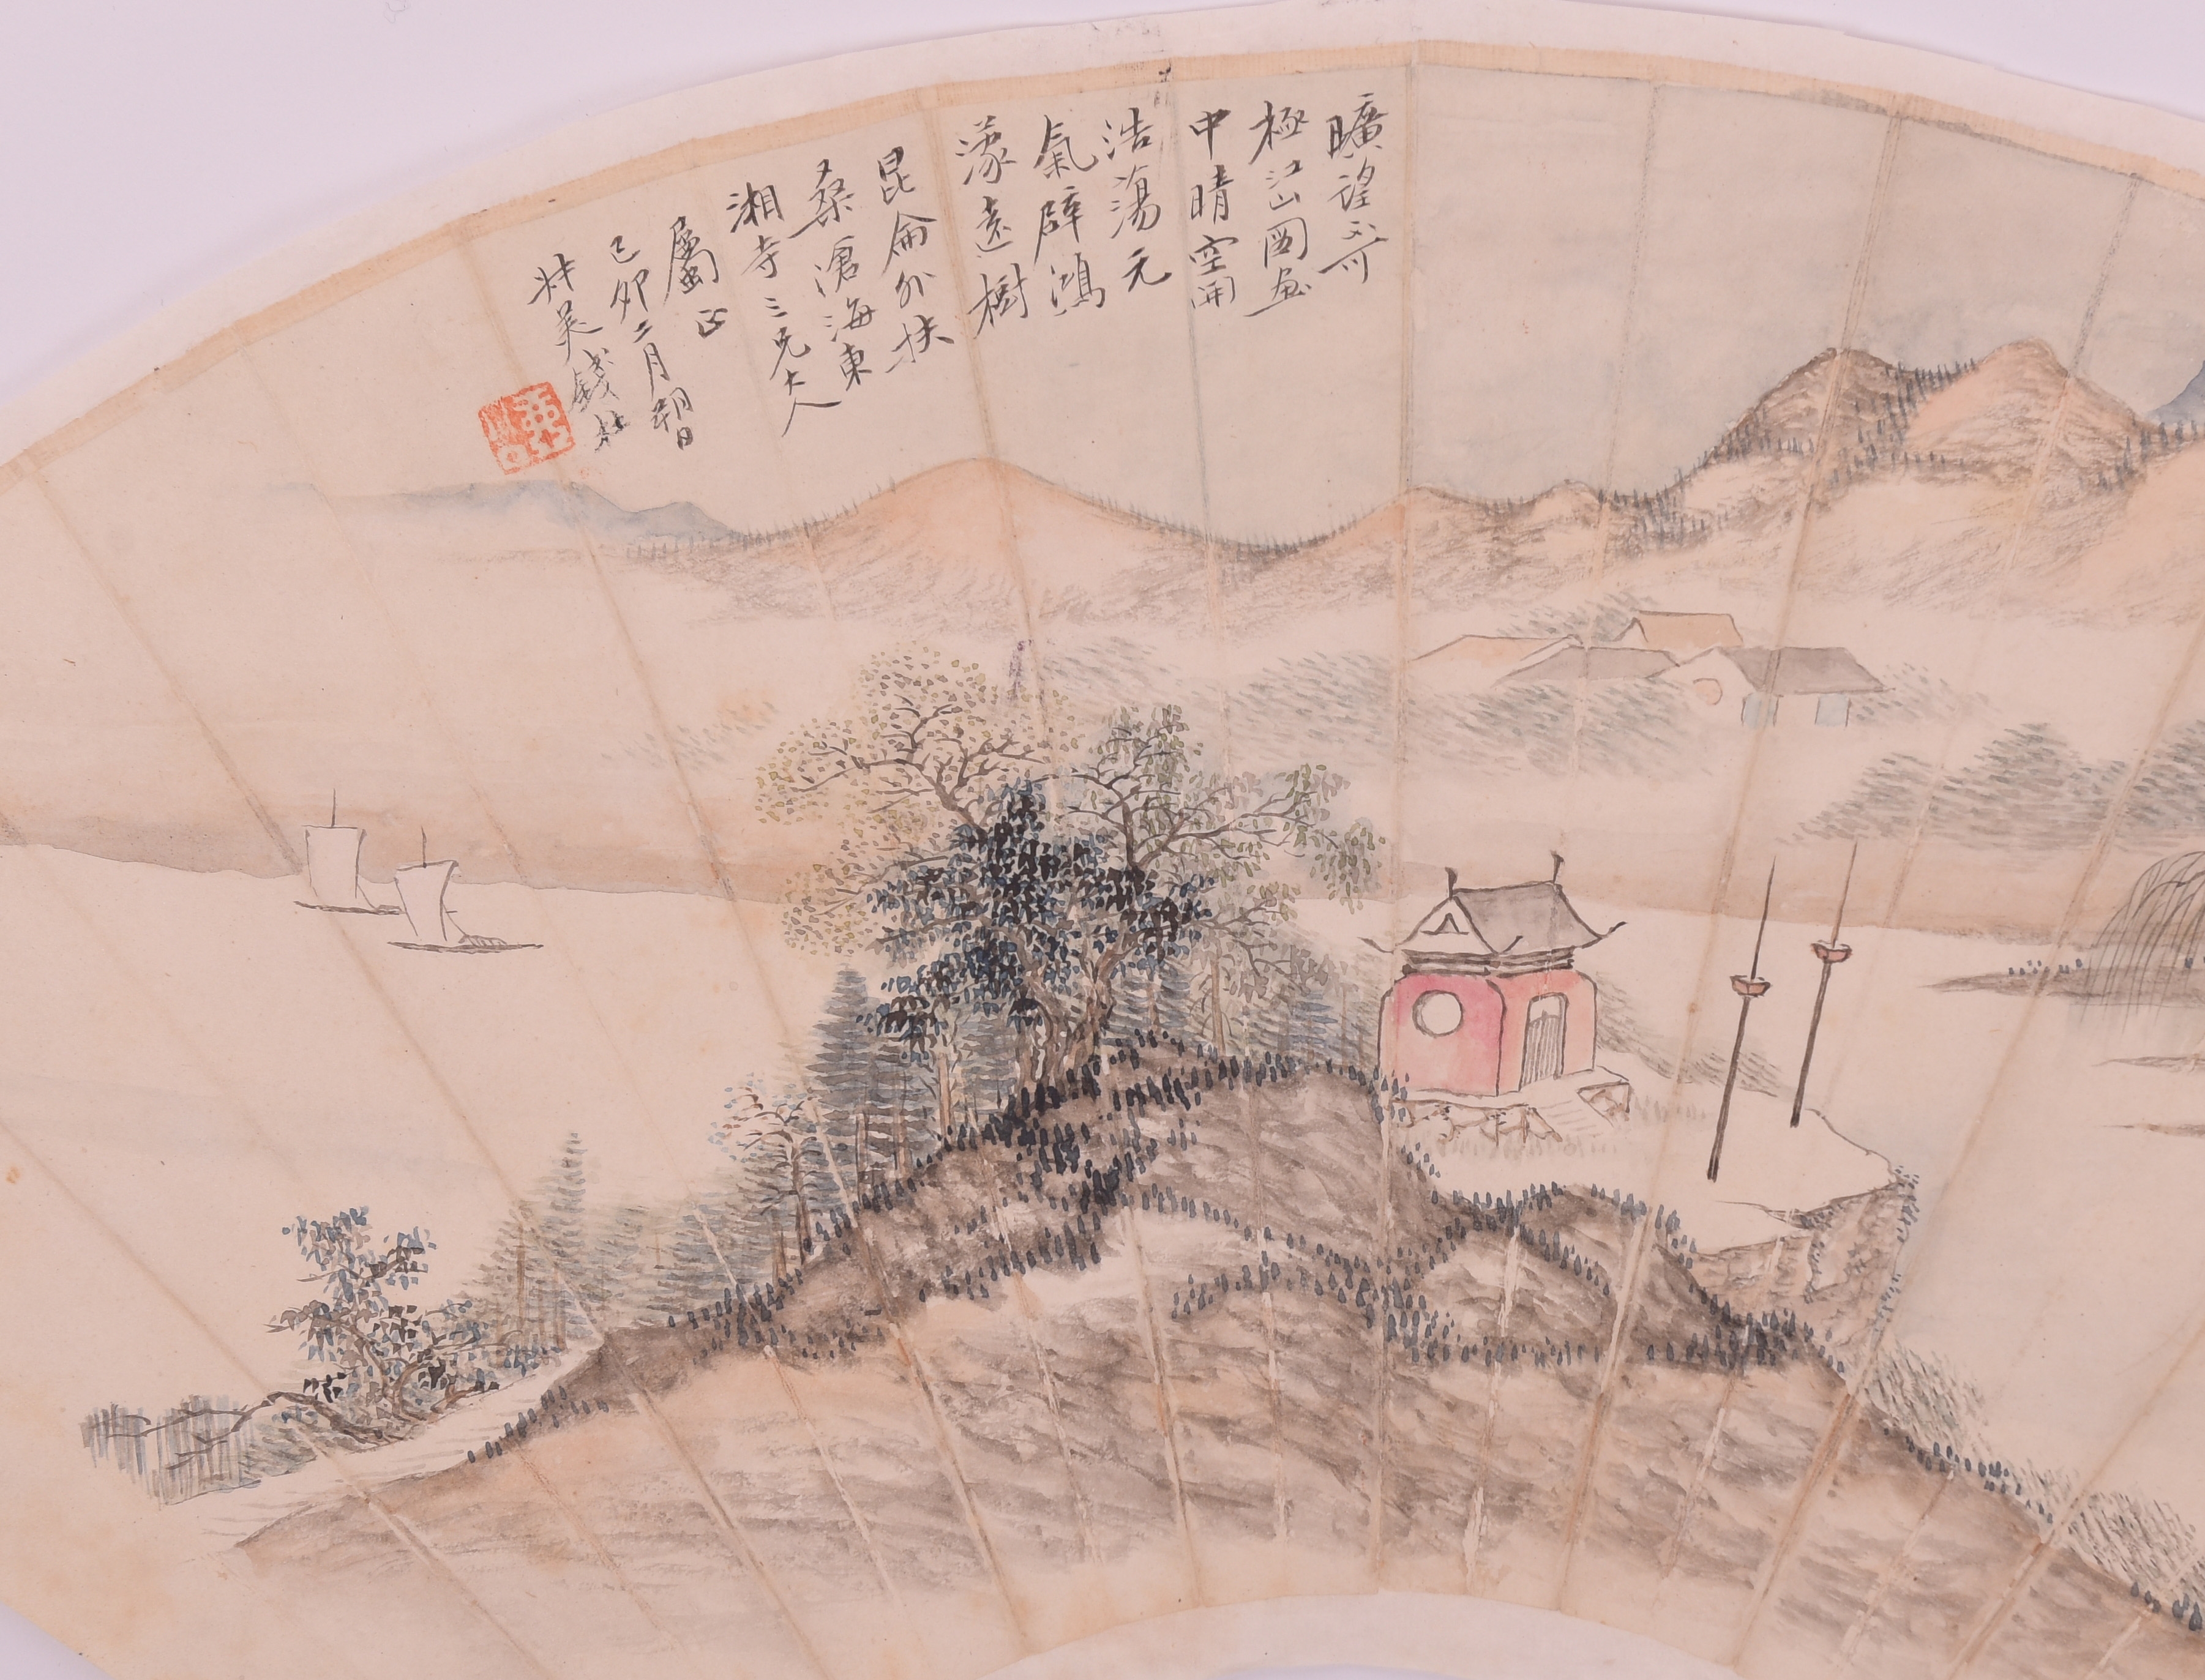 曠望不可
極江山圖畫
中晴空開
浩蕩元
氣辟鴻
濛遠樹
昆侖外扶
桑滄海東
湘寺三兄大人
屬正
己卯二月朔日
叔美錢杜